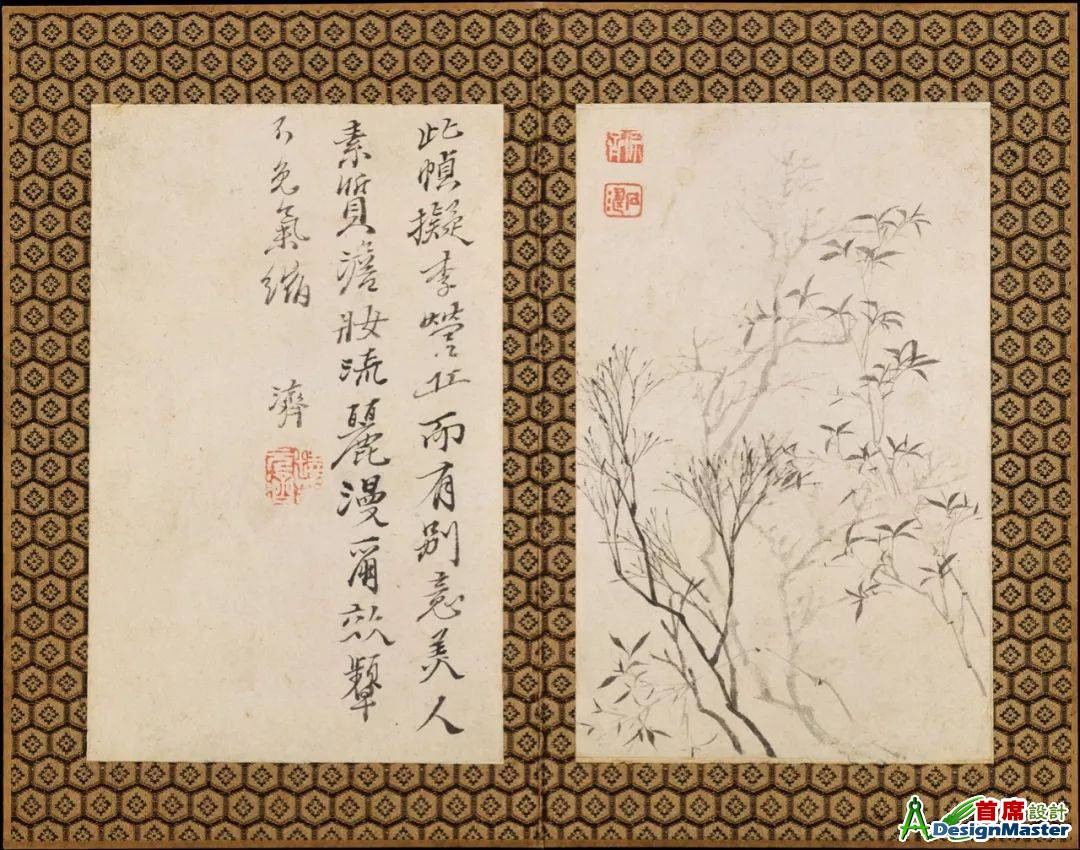 此幀擬李營丘而有別意美人
素質澹妝流麗漫爾效顰
不免氣縮
濟
首席設計
DesignMaster